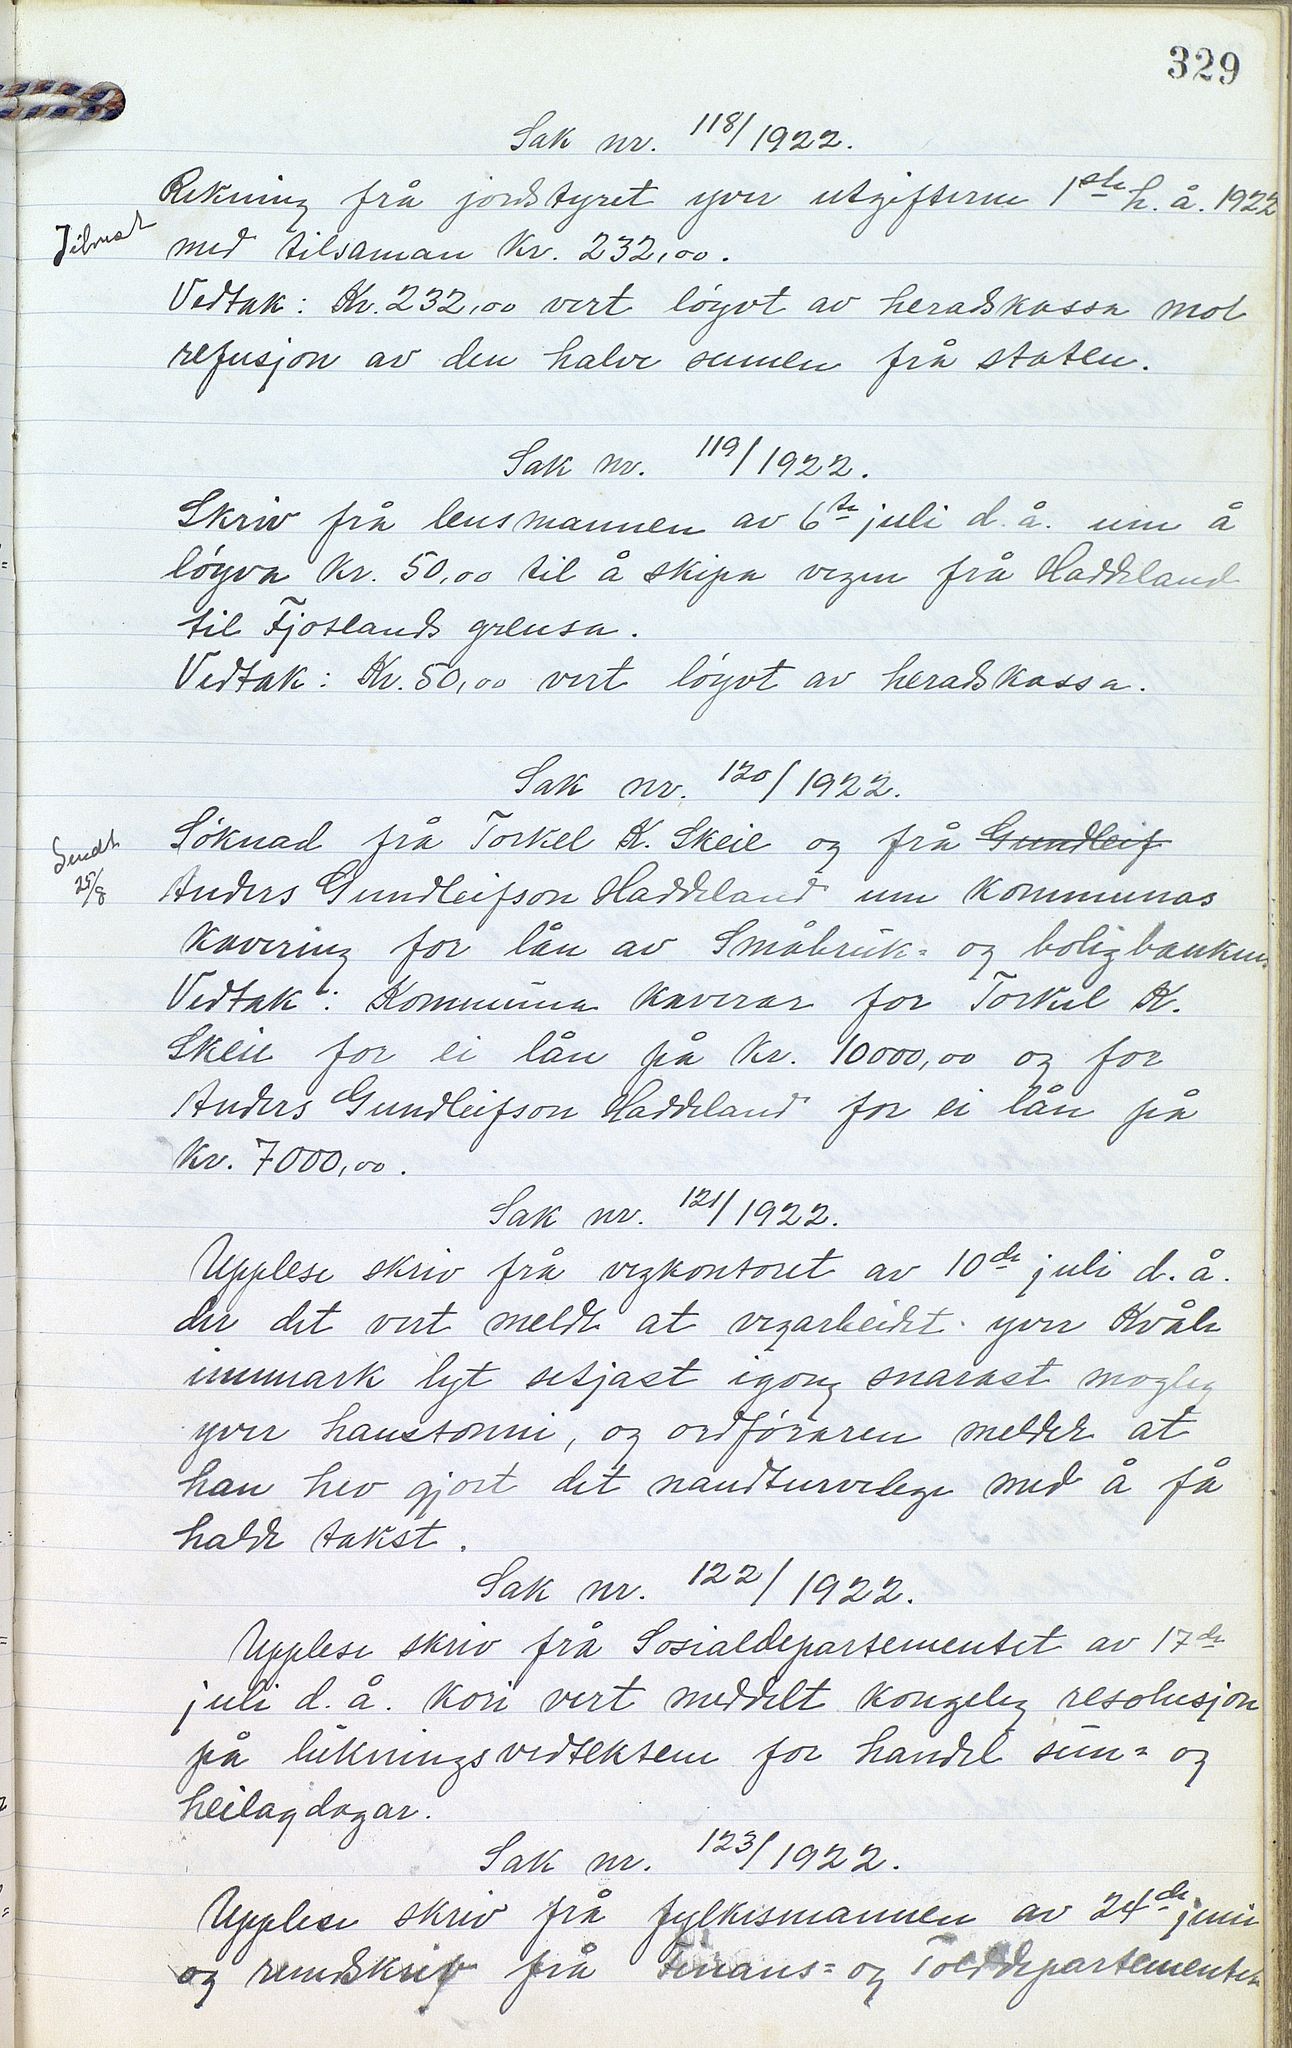 329
Sak nr. 118/1922.
Rekning frå jordstyret yver utgifterne 1ste h. å. 1922
med tilsaman Kr. 232,00.
Vedtak: Kr. 232,00 vert løyvt av heradskassa mot
refusjon av den halve sumen frå staten.
Sak nr. 119/1922.
Skriv frå lensmannen av 6te juli d. å. um å
løyva Kr. 50,00 til å skipa vegen frå Haddeland
til Fjotlands grensa.
Vedtak: Kr. 50,00 vert løyvt av heradskassa.
Sak nr. 120/1922.
Sendt
25/8
Søknad frå Torkel K. Skeie og frå Gundleif
Anders Gundleifson Haddeland um kommunas
kavering for lån av Småbruk- og boligbanken.
Vedtak: Kommuna kaverar for Torkel K.
Skeie for ei lån på Kr. 10000,00 og for
Anders Gundleifson Haddeland for ei lån på
Kr. 7000,00.
Sak nr. 121/1922.
Upplese skriv frå vegkontoret av 10de juli d. å.
der det vert meldt at vegarbeidet yver Kvåle
innmark lyt setjast igong snarast mogleg
yver haustonni, og ordføraren melder at
han hev gjort det naudturvelege med å få
halde takst.
Sak nr. 122/1922.
Upplese skriv frå Sosialdepartementet av 17de
juli d. å. kori vert meddelt kongeleg resolusjon
på lukningsvedtektene for handel sun- og
heilagdagar.
Sak nr. 123/1922.
Upplese skriv frå fylkesmannen av 24de juni
og rundskriv frå Finans- og Tolldepartementet